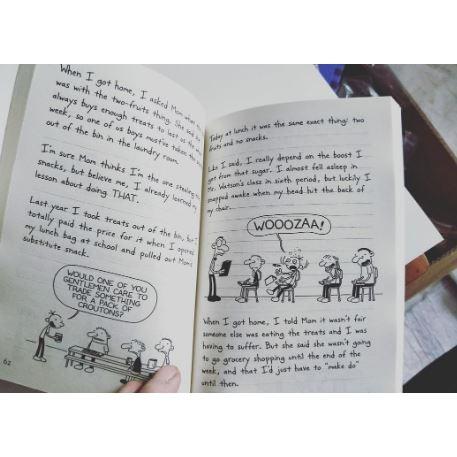 When I got home, I asked Mom what
was with the two-fruits thing. She said she
always buys enough treats to last us the whole
week, so one of us boys must've taken the snacks
out of the bin in the laundry room.
I'm sure Mom thinks I'm the one stealing the
snacks, but believe me, I already learned my
lesson about doing THAT.
Last year I took treats out of the bin, but I
totally paid the price for it when I opened
my lunch bag at school and pulled out Mom's
substitute snack.
WOULD ONE OF YOU
GENTLEMEN CARE TO
TRADE SOMETHING
FOR A PACK OF
CROUTONS?
62
Today at lunch it was the same exact thing: two
fruits and no snacks.
Like I said, I really depend on the boost I
get from that sugar. I almost fell asleep in
Mr. Watson's class in sixth period, but luckily I
snapped awake when my head hit the back of
my chair.
WOOOZAA!
When I got home, I told Mom it wasn't fair
someone else was eating the treats and I was
having to suffer. But she said she wasn't going
to go grocery shopping until the end of the
week, and that I'd just have to "make do"
until then.